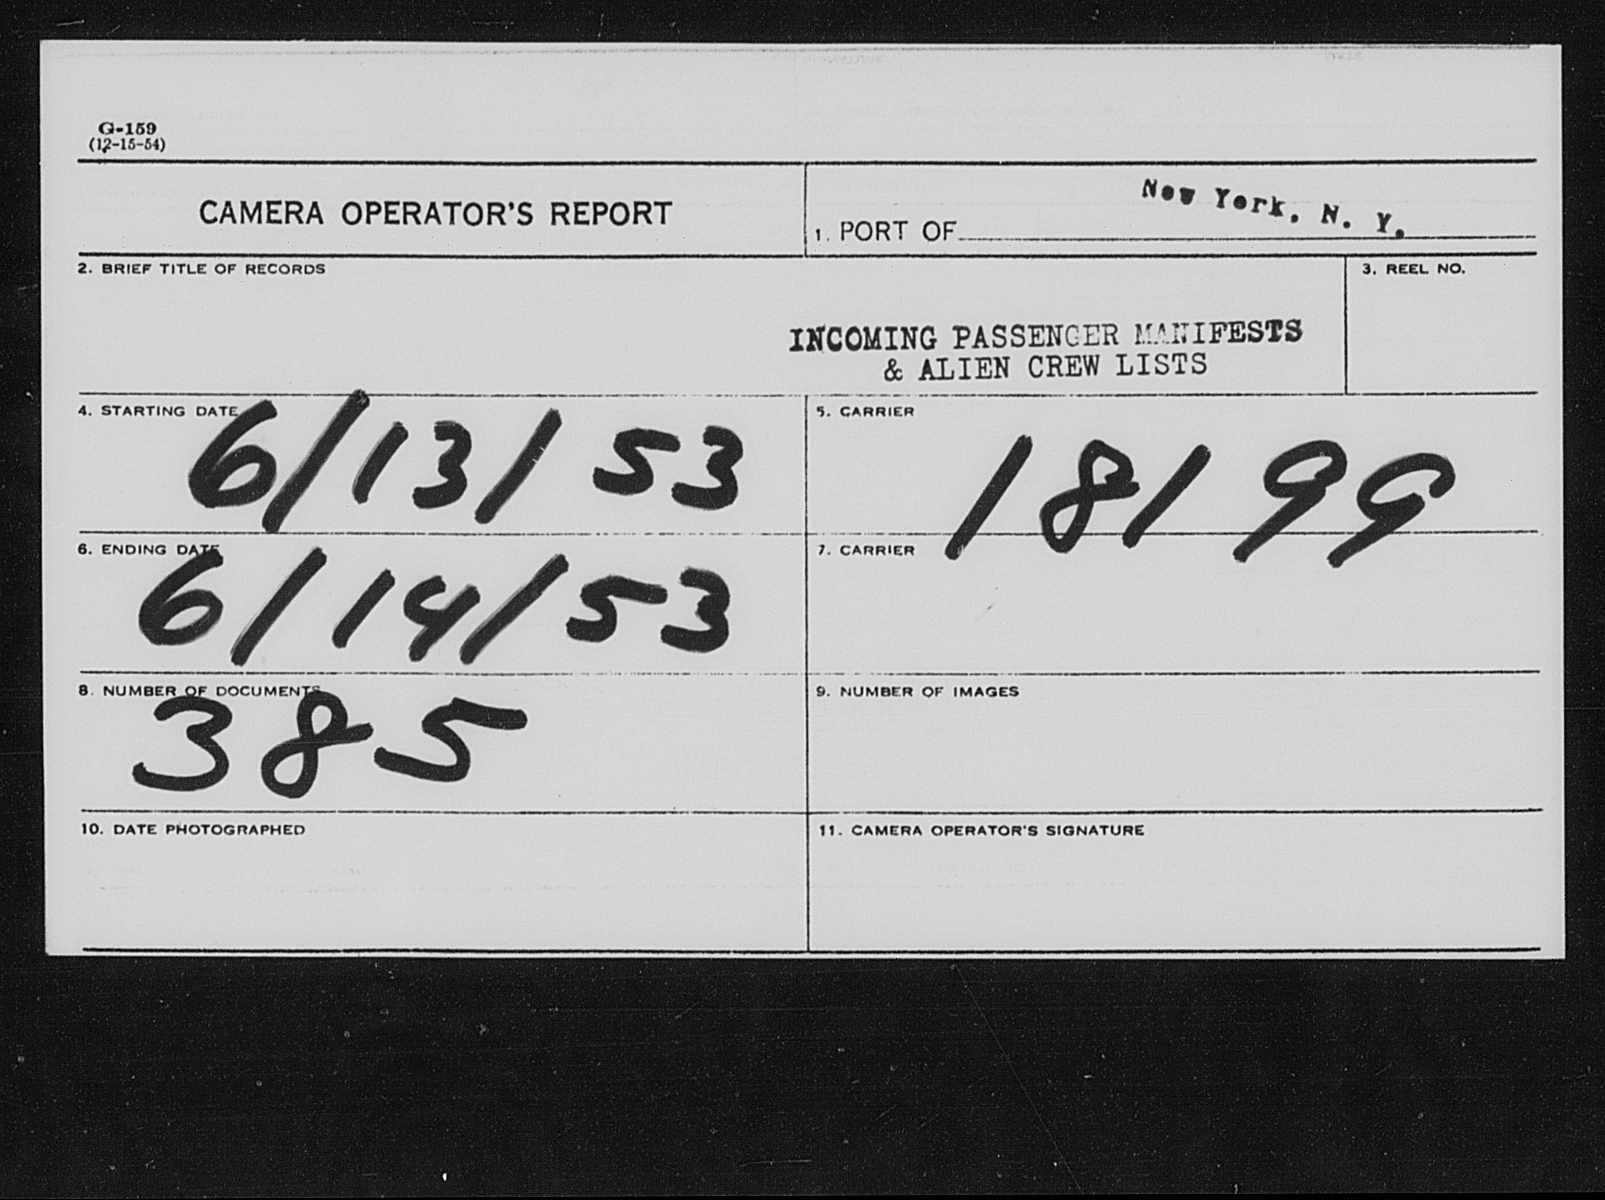 G-159
(12-15-54)
CAMERA OPERATOR'S REPORT
1. PORT OF New York, N. Y.
2. BRIEF TITLE OF RECORDS
3. REEL NO.
INCOMING PASSENGER MANIFESTS
& ALIEN CREW LISTS
4. STARTING DATE
6/13/53
5. CARRIER
18199
6. ENDING DATE
6/14/53
7. CARRIER
8. NUMBER OF DOCUMENTS
385
9. NUMBER OF IMAGES
10. DATE PHOTOGRAPHED
11. CAMERA OPERATOR'S SIGNATURE